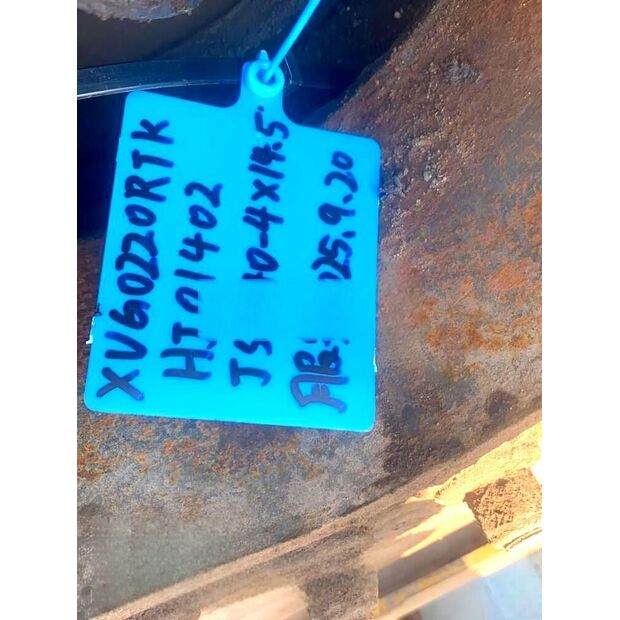 XVG0220RTK
HJ01402
JS 10-4×14.5
月日: 25.9.20